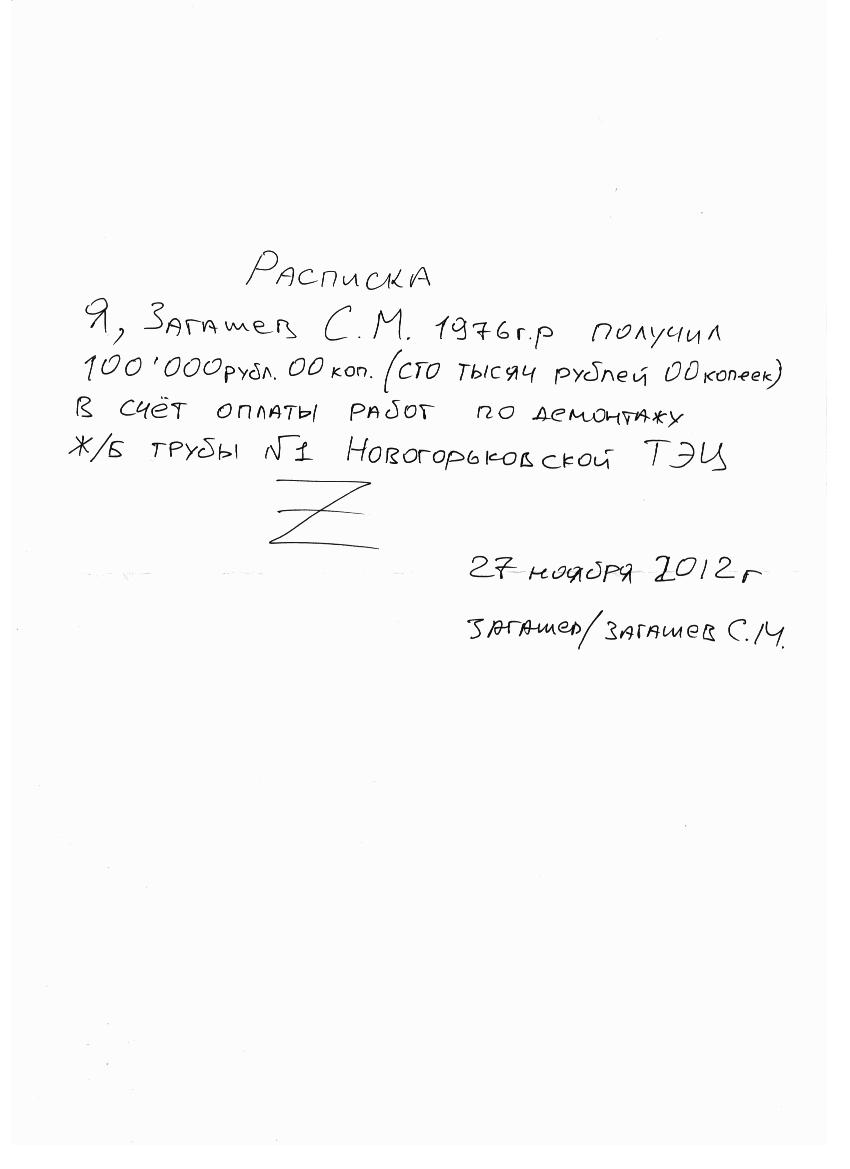 Расписка
Я, Загашев С.М. 1976г.р получил
100'000рубл. 00 коп. (сто тысяч рублей 00 копеек)
в счёт оплаты работ по демонтажу
ж/б трубы №1 Новогорьковской ТЭЦ
Z
27 ноября 2012 г
Загашев/Загашев С.М.